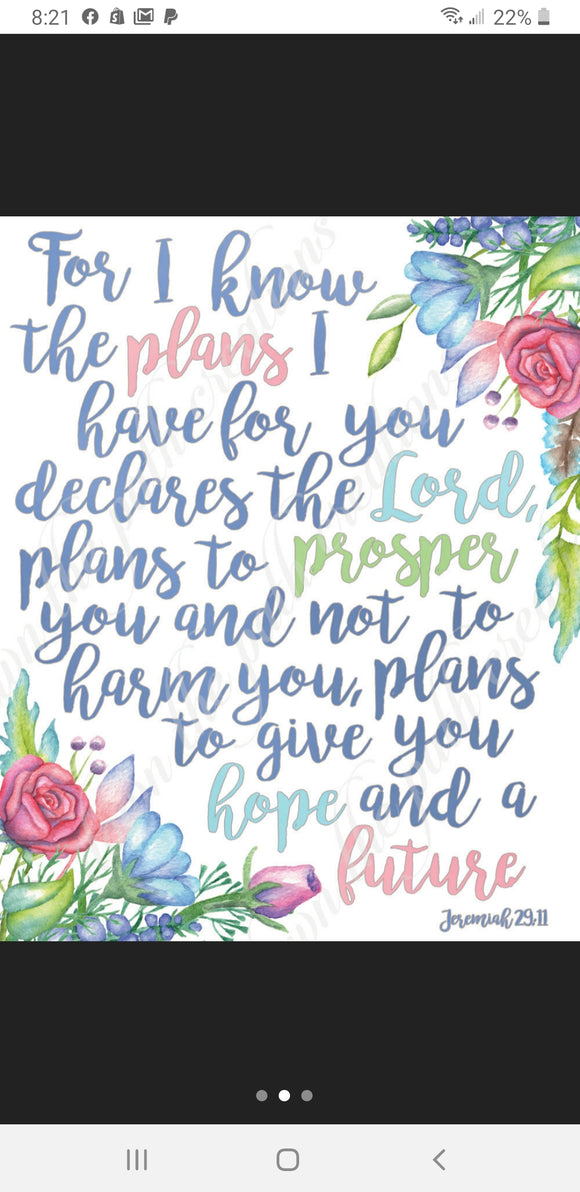 8:21 22%
For I know
the plans I
have for you
declares the Lord,
plans to prosper
you and not to
harm you, plans
to give you
hope and a
future
Jeremiah 29:11